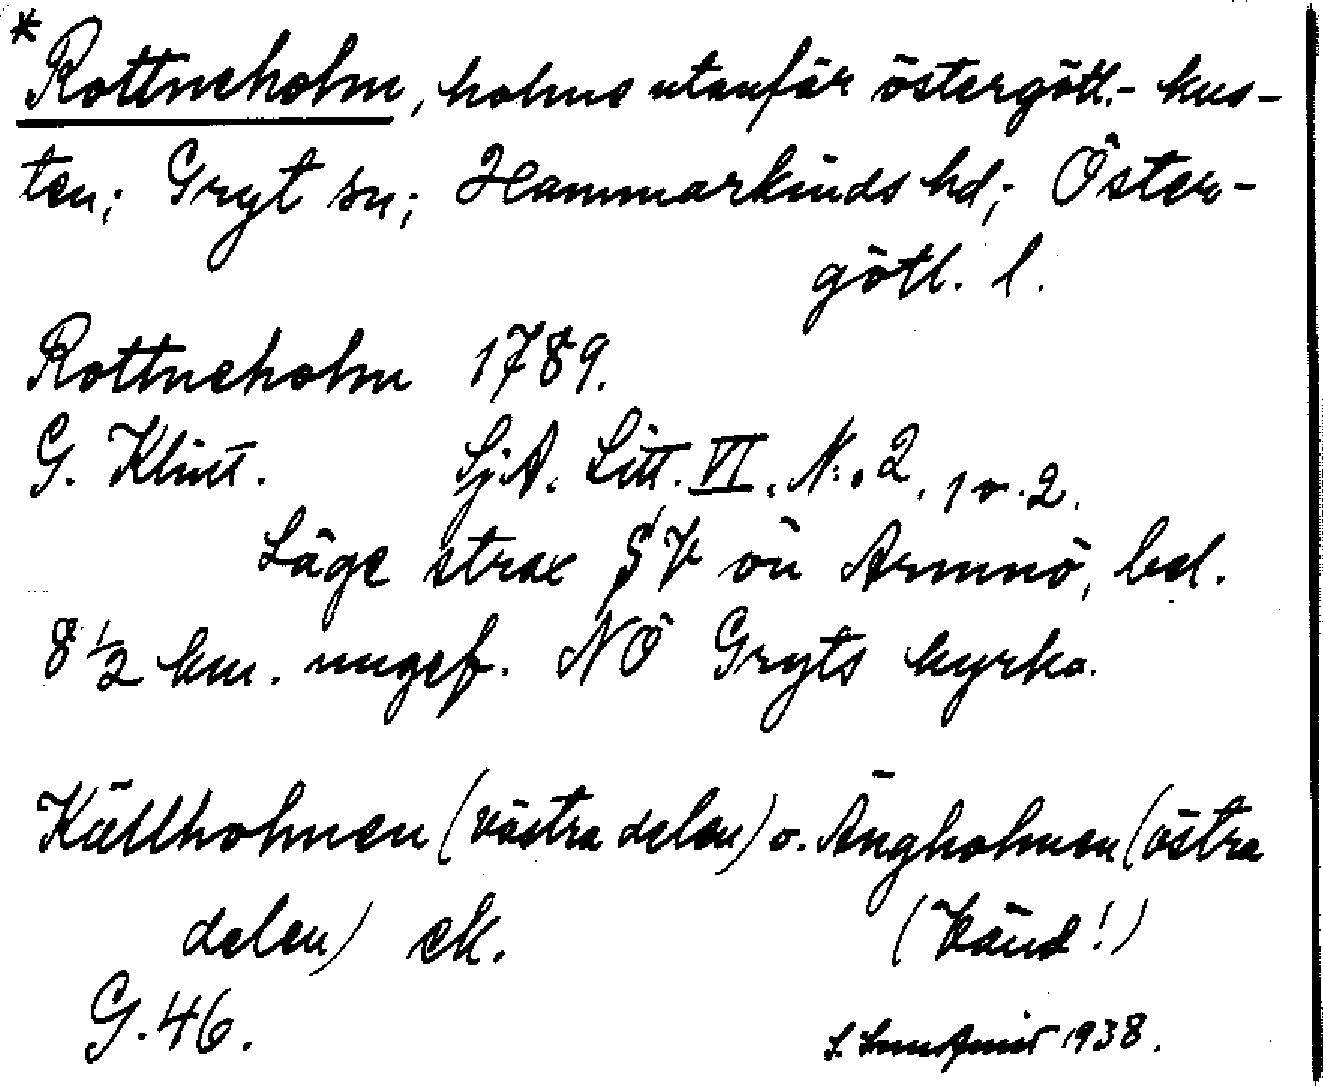 * Rottneholm, holme utanför östergötl.- kus-
ten; Gryt sn; Hammarkinds hd; Öster-
götl. l.
Rottneholm 1789.
G. Klint. SjA. Litt. VI. N:o 2. 1 o. 2.
Läge strax SV om Armnö, bel.
8 1/2 km. ungef. NÖ Gryts kyrka.
Källholmen (västra delen) o. Ängholmen (östra
delen) ek. (Vänd!)
G. 46. 1938.